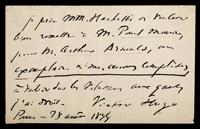 je prie MM. Hachette et
bien remettre à M. Paul Meurice,
pour M. Arthur Arnould, un
exemplaire de mes œuvres complètes
à valoir sur les
j'ai droit. Victor Hugo
Paris — 28 août 1875